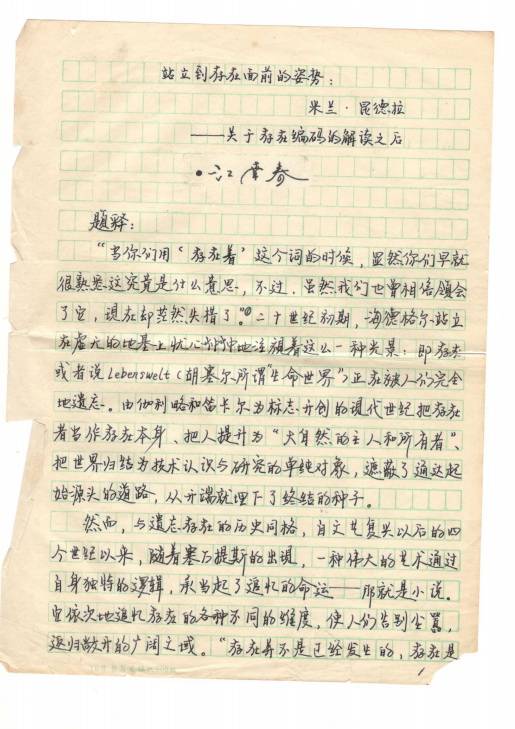 站立到存在面前的姿势：
米兰·昆德拉
——关于存在编码的解读之后
·江常春
题释：
“当你们用‘存在着’这个词的时候，显然你们早就
很熟悉这究竟是什么意思，不过，虽然我们也曾相信领会
了它，现在却茫然失措了”①二十世纪初期，海德格尔站立
在虚无的地基上忧心忡忡地注视着这么一种光景：即存在
或者说Lebenswelt（胡塞尔所谓“生命世界”）正在被人们完全
地遗忘。由伽利略和笛卡尔为标志开创的现代世纪把存在
者当作存在本身、把人提升为“大自然的主人和所有者”、
把世界归结为技术认识与研究的单纯对象，遮蔽了通达起
始源头的道路，从开端就埋下了终结的种子。
然而，与遗忘存在的历史同格，自文艺复兴以后的四
个世纪以来，随着塞万提斯的出现，一种伟大的艺术通过
自身独特的逻辑，承当起了追忆的命运——那就是小说。
它依次地追忆存在的各种不同的维度，使人们告别尘嚣，
返归敞开的广阔之域。“存在并不是已经发生的，存在是
1